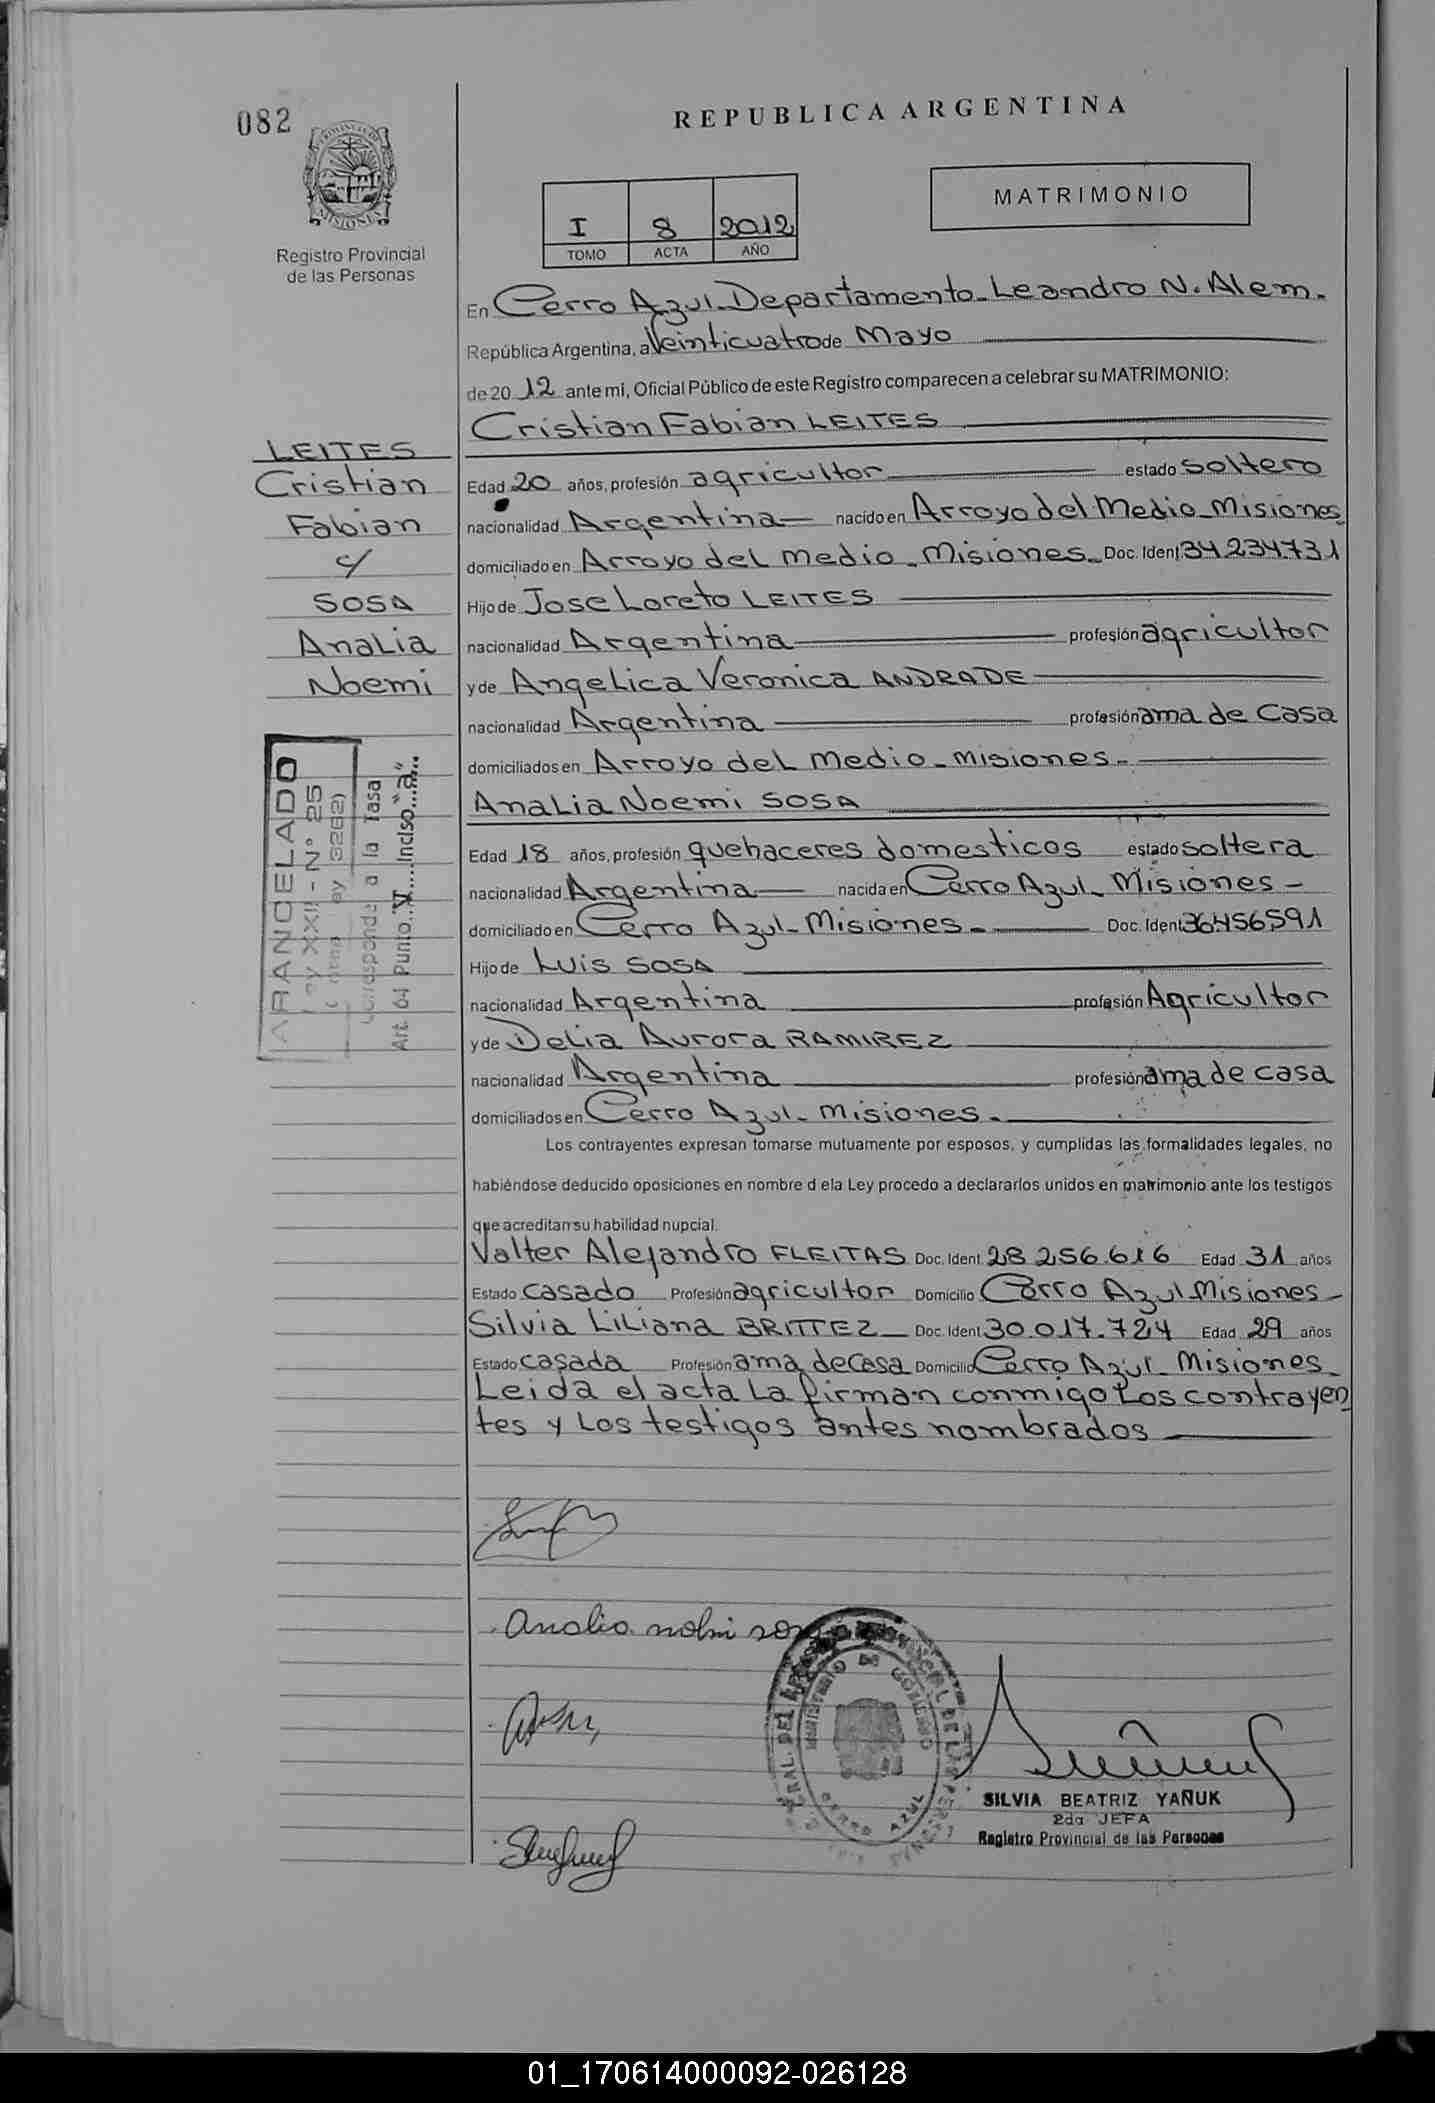 082
REPUBLICA ARGENTINA
PROVINCIA DE
MISIONES
Registro Provincial
de las Personas
MATRIMONIO
I 8 2012
TOMO ACTA AÑO
En Cerro Azul Departamento Leandro N. Alem.
República Argentina, a Veinticuatro de Mayo
de 20 12 ante mi, Oficial Público de este Registro comparecen a celebrar su MATRIMONIO:
Cristian Fabian LEITES
LEITES
Cristian
Fabian
c/
SOSA
Analia
Noemi
Edad 20 años, profesión agricultor estado soltero
nacionalidad Argentina nacido en Arroyo del Medio - Misiones
domiciliado en Arroyo del Medio - Misiones - Doc. Ident 34234731
Hijo de Jose Loreto LEITES
nacionalidad Argentina profesión agricultor
y de Angelica Veronica ANDRADE
nacionalidad Argentina profesión ama de casa
domiciliados en Arroyo del Medio - Misiones -
Analia Noemi SOSA
ARANCELADO
XXII - Nº 25
3282)
a la Tasa
Art. 64 Punto V Inciso "a"
Edad 18 años, profesión quehaceres domesticos estado soltera
nacionalidad Argentina nacida en Cerro Azul - Misiones -
domiciliado en Cerro Azul - Misiones - Doc. Ident 36456591
Hijo de Luis SOSA
nacionalidad Argentina profesión Agricultor
y de Delia Aurora RAMIREZ
nacionalidad Argentina profesión ama de casa
domiciliados en Cerro Azul - Misiones -
Los contrayentes expresan tomarse mutuamente por esposos, y cumplidas las formalidades legales, no
habiéndose deducido oposiciones en nombre d ela Ley procedo a declararlos unidos en matrimonio ante los testigos
que acreditan su habilidad nupcial.
Valter Alejandro FLEITAS Doc. Ident. 28.256.616 Edad 31 años
Estado casado Profesión agricultor Domicilio Cerro Azul Misiones -
Silvia Liliana BRITTEZ - Doc. Ident 30.017.724 Edad 29 años
Estado casada Profesión ama de casa Domicilio Cerro Azul Misiones -
Leida el acta la firman conmigo los contrayen
tes y los testigos antes nombrados
Analia
MINISTERIO DE GOBIERNO
CERRO AZUL
SILVIA BEATRIZ YAÑUK
2da JEFA
Registro Provincial de las Personas
01_170614000092-026128